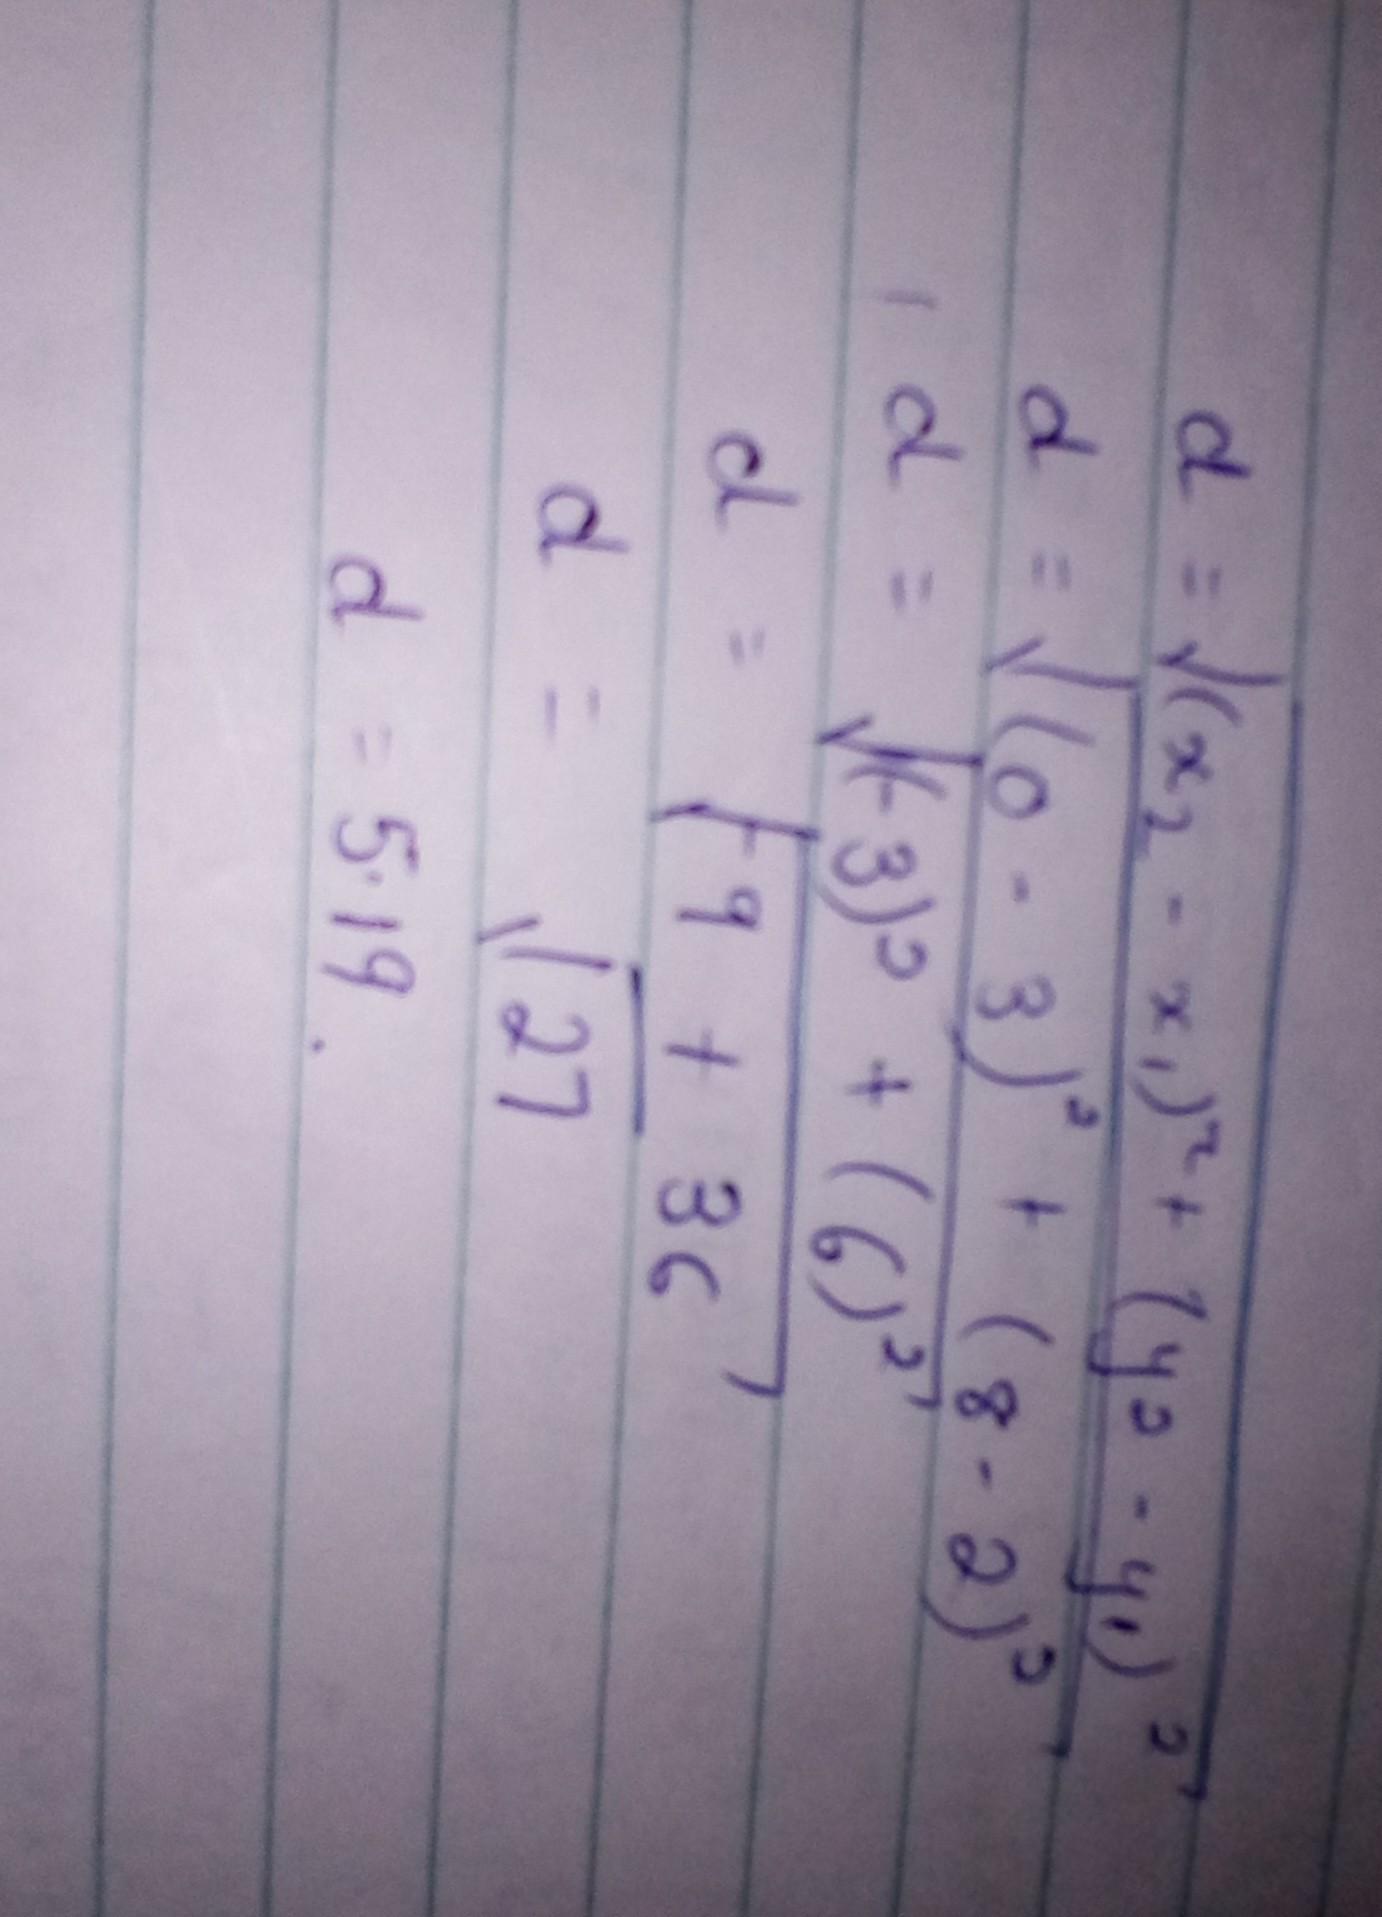 d = √(x₂ - x₁)² + (y₂ - y₁)²
d = √(0 - 3)² + (8 - 2)²
d = √(-3)² + (6)²
d = √-9 + 36
d = √27
d = 5.19.